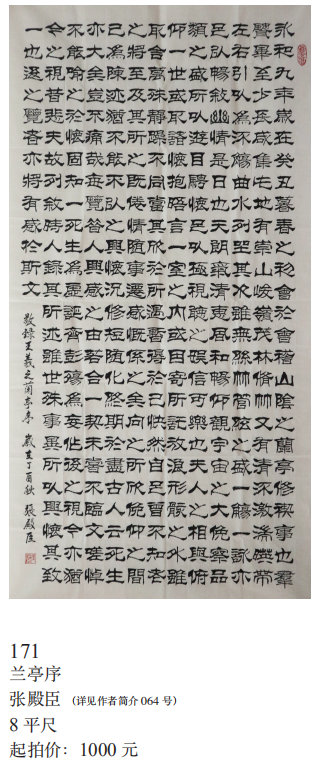 永和九年歲在癸丑暮春之初會於會稽山陰之蘭亭修禊事也羣
賢畢至少長咸集此地有崇山峻嶺茂林脩竹又有清流激湍映帶
左右引以為流觴曲水列坐其次雖無絲竹管弦之盛一觴一詠亦
足以暢敘幽情是日也天朗氣清惠風和暢仰觀宇宙之大俛察品
類之盛所以遊目騁懷足以極視聽之娛信可樂也夫人之相與俯
仰一世或取諸懷抱晤言一室之內或因寄所託放浪形骸之外雖
取舍萬殊靜躁不同當其欣於所遇暫得於己快然自足曾不知老
之將至及其所之既倦情隨事遷感慨係之矣向之所欣俛仰之間
已為陳迹猶不能不以之興懷況修短隨化終期於盡古人云死生
亦大矣豈不痛哉每覽昔人興感之由若合一契未嘗不臨文嗟悼
不能喻之於懷固知一死生為虛誕齊彭殤為妄作後之視今亦猶
今之視昔悲夫故列敘時人錄其所述雖世殊事異所以興懷其致
一也後之覽者亦將有感於斯文
敬錄王羲之蘭亭序 歲在丁酉秋 張殿臣
171
兰亭序
张殿臣 （详见作者简介 064 号）
8 平尺
起拍价：1000 元